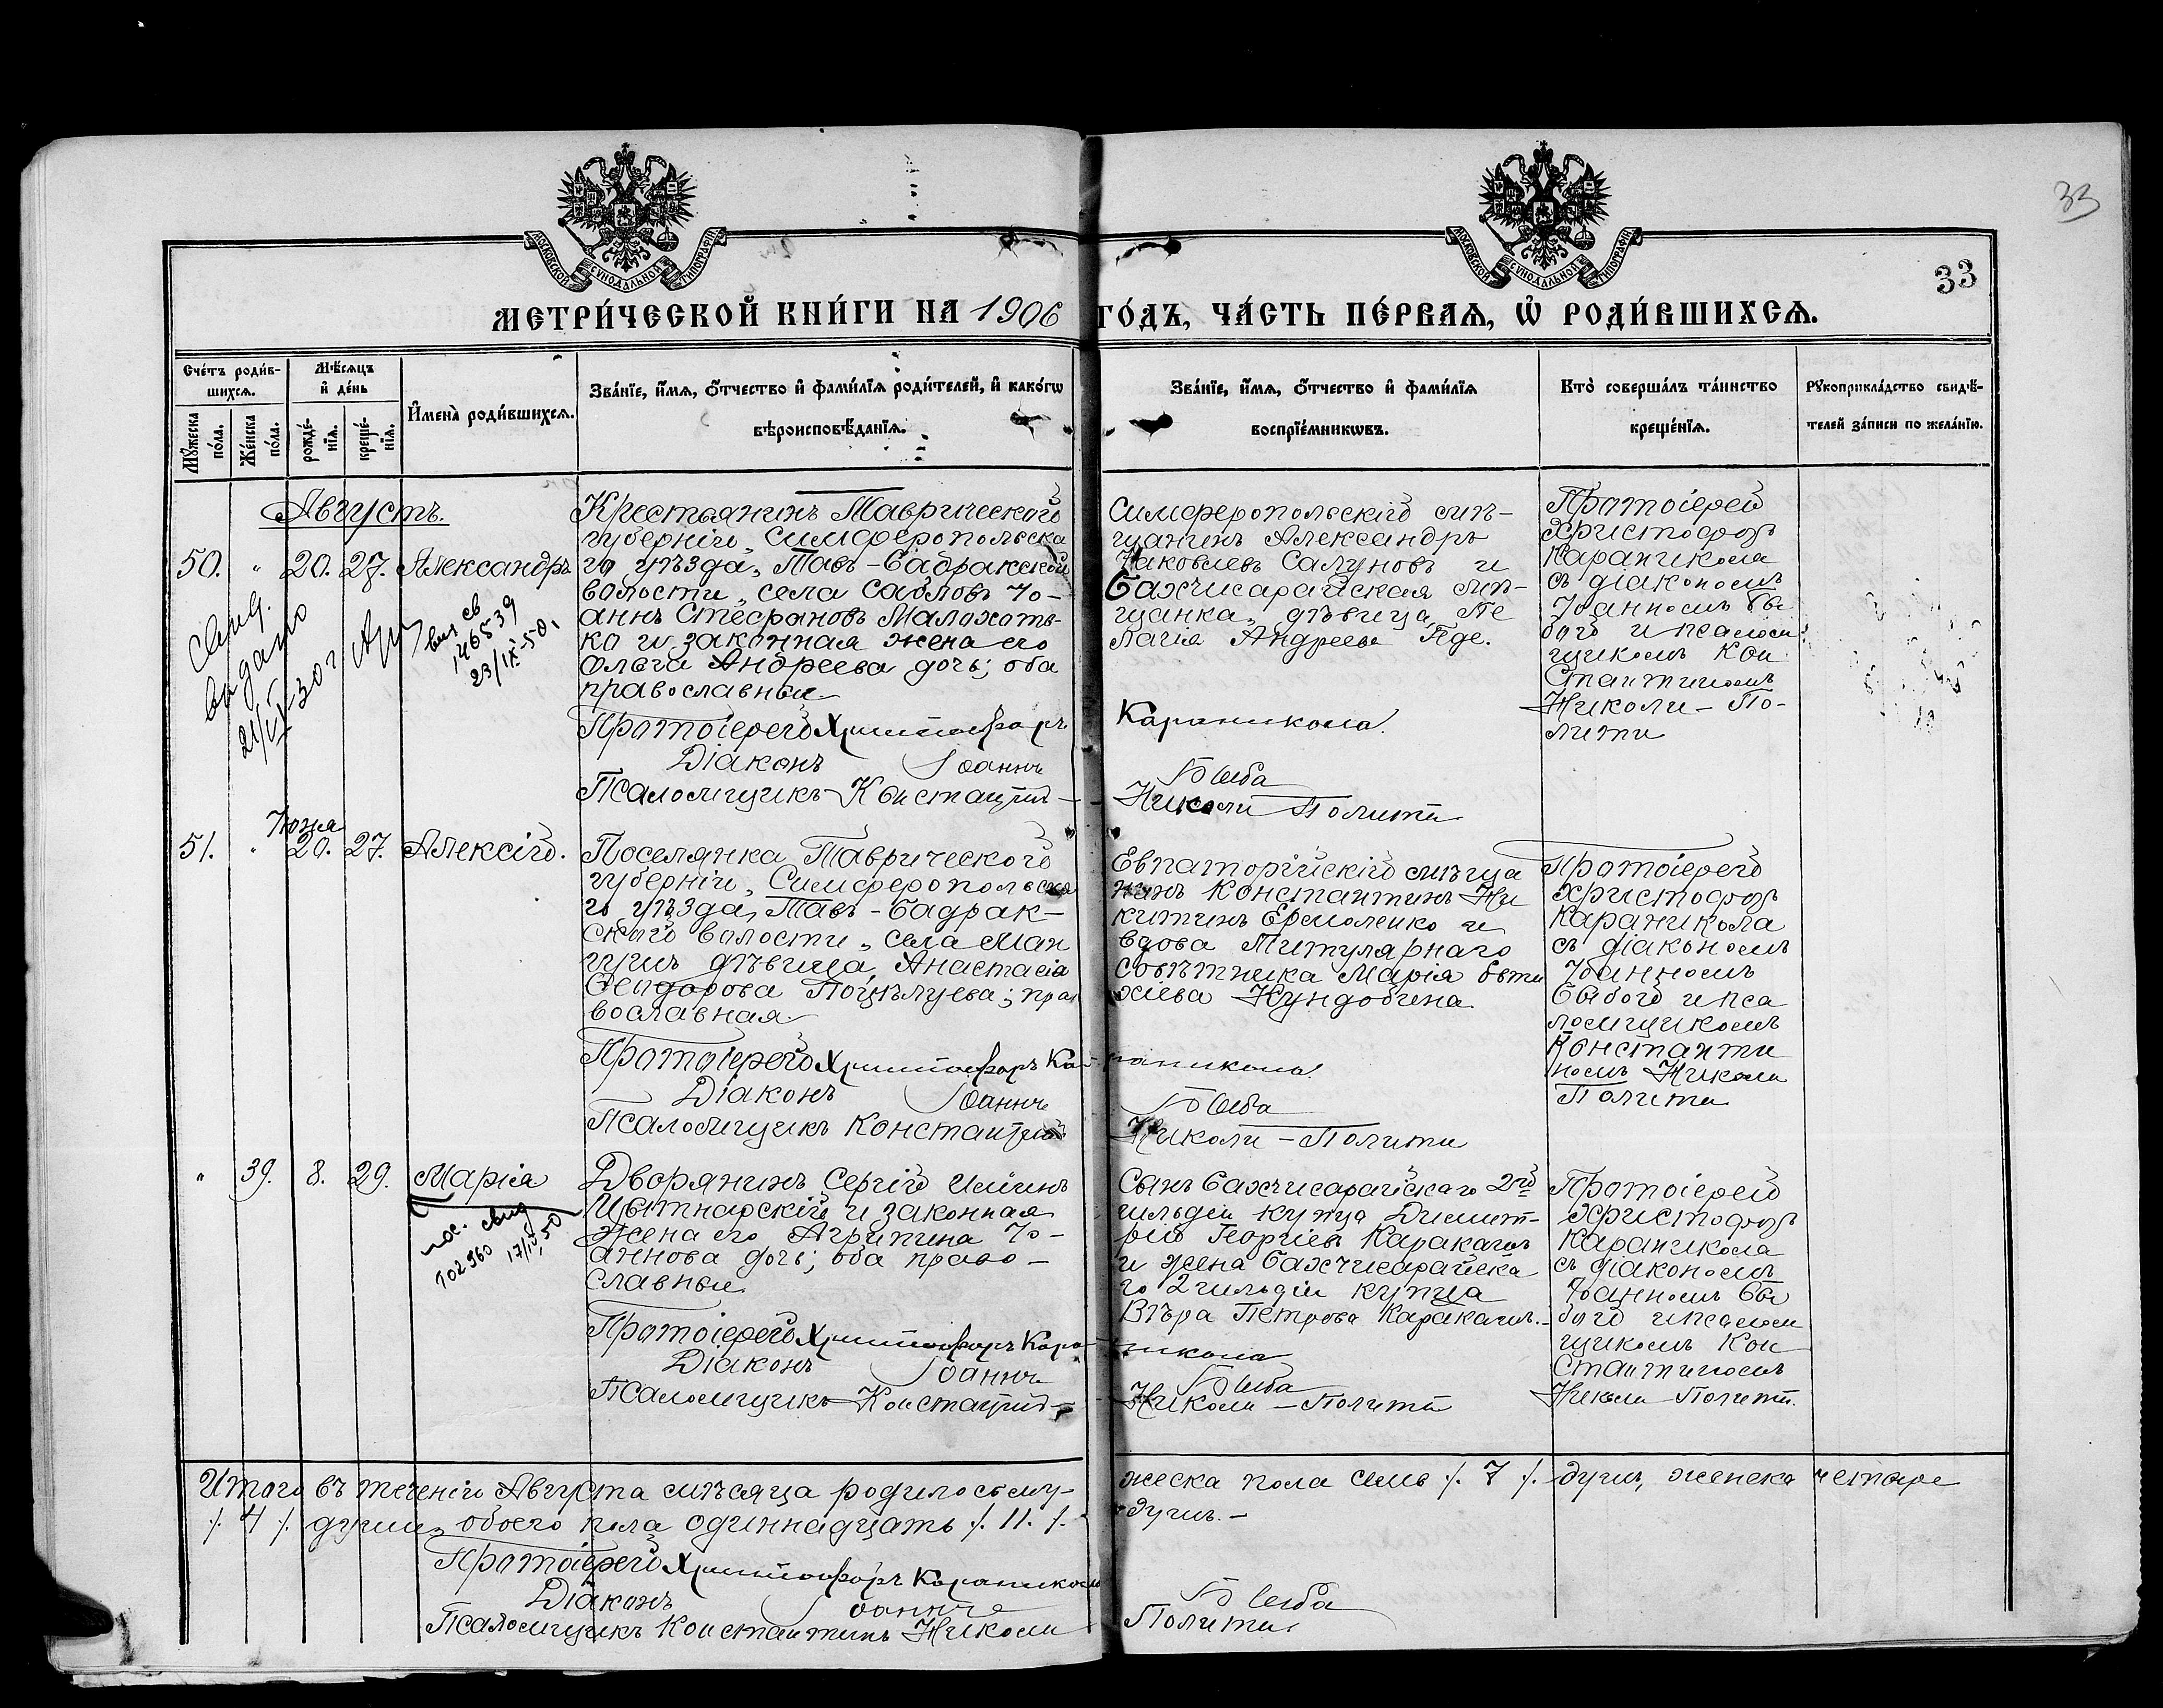 33
33
МОСКОВСКОЙ СѴНОДАЛЬНОЙ ТИПОГРАФІИ
МОСКОВСКОЙ СѴНОДАЛЬНОЙ ТИПОГРАФІИ
МЕТРИ́ЧЕСКОЙ КНИ́ГИ НА 1906 ГО́ДЪ, ЧА́СТЬ ПЕ́РВАѦ, Ѽ РОДИ́ВШИХСѦ.
Сче́тъ роди́в-
шихсѧ.
Мꙋ́жеска по́ла.
Же́нска по́ла.
Мѣ́сѧцъ
и҆ де́нь
рожде́-
нїѧ.
креще́-
нїѧ.
И҆мена̀ роди́вшихсѧ.
Зва́нїе, и҆́мѧ, ѻ҆́тчество и҆ фами́лїѧ роди́телей, и҆ како́гѡ
вѣроисповѣ́данїѧ.
Зва́нїе, и҆́мѧ, ѻ҆́тчество и҆ фами́лїѧ
воспрїе́мникѡвъ.
Кто̀ соверша́лъ та́инство
креще́нїѧ.
Рꙋкоприкла́дство свидѣ́-
телей за́писи по жела́нїю.
Августъ.
50. " 20. 27. Александръ
Свид.
выдано
21/VI-30 г.
выд св
146539
23/IX-50.
Крестьянинъ Таврической
губерніи, Симферопольска
го уѣзда, Тавъ-Бадракской
волости, села Сабловъ Іо-
аннъ Стефановъ Маложоть-
ко и законная жена его
Ольга Андреева дочь; оба
православные.
Протоіерей Христофоръ
Діаконъ Іоаннъ
Псаломщикъ Константинъ
Симферопольскій мѣ-
щанинъ Александръ
Яковлевъ Салуновъ и
Бахчисарайская мѣ-
щанка, дѣвица, Пе
лагія Андреева Гиде.
Караникола.
Быба
Николи-Полити
Протоіерей
Христофоръ
Караникола
съ діакономъ
Іоанномъ Бы
бою и псалом
щикомъ Кон
стантиномъ
Николи-По-
лити
51. " Іюня 20. 27. Алексій.
Поселянка Таврической
губерніи, Симферопольска
го уѣзда, Тавъ-Бадрак-
ской волости, села Ман
гушъ дѣвица Анастасія
Феодорова Поцѣлуева; пра
вославная.
Протоіерей Христофоръ Ка-
Діаконъ Іоаннъ
Псаломщикъ Константинъ
Евпаторійскій мѣща
нинъ Константинъ Ни
китинъ Ермоленко и
вдова Титулярнаго
совѣтника Марія Евти
хіева Кундобина
раникола.
Быба
Николи-Полити
Протоіерей
Христофоръ
Караникола
съ діакономъ
Іоанномъ
Быбою и пса
ломщикомъ
Константи
номъ Николи
Полити
" 39. 8. 29. Марія
пос. свид
102960 17/IV-50
Дворянинъ Сергій
Цытнарскій и законная
жена его Агрипина Іо-
аннова дочь; оба право-
славные.
Протоіерей Христофоръ Кара-
Діаконъ Іоаннъ
Псаломщикъ Константинъ
Сынъ Бахчисарайскаго 2ой
гильдіи купца Димит-
рій Георгіевъ Каракашъ
и жена Бахчисарайска
го 2 гильдіи купца
Вѣра Петрова Каракашъ.
никола
Быба
Николи-Полити
Протоіерей
Христофоръ
Караникола
съ діакономъ
Іоанномъ Бы
бою и псалом
щикомъ Кон
стантиномъ
Николи-Полити.
Итого въ теченіи Августа мѣсяца родилось му-
жеска пола семь /. 7 /. душъ, женска четыре
/. 4 /. души, обоего пола одиннадцать /. 11. /.
душъ.-
Протоіерей Христофоръ Караникола
Діаконъ Іоаннъ Быба
Псаломщикъ Константинъ Николи Полити